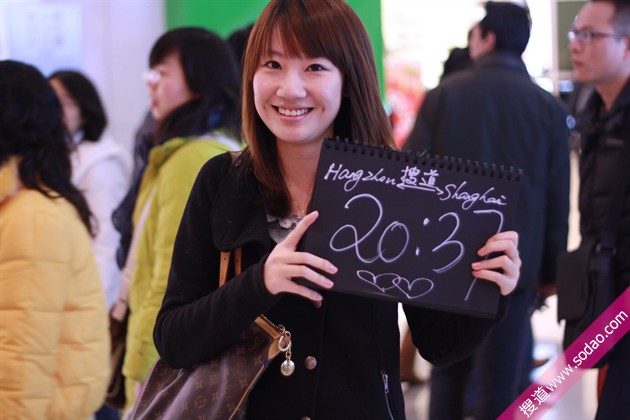 Hangzhou 搜道 Shanghai
20:37
搜道 www.sodao.com